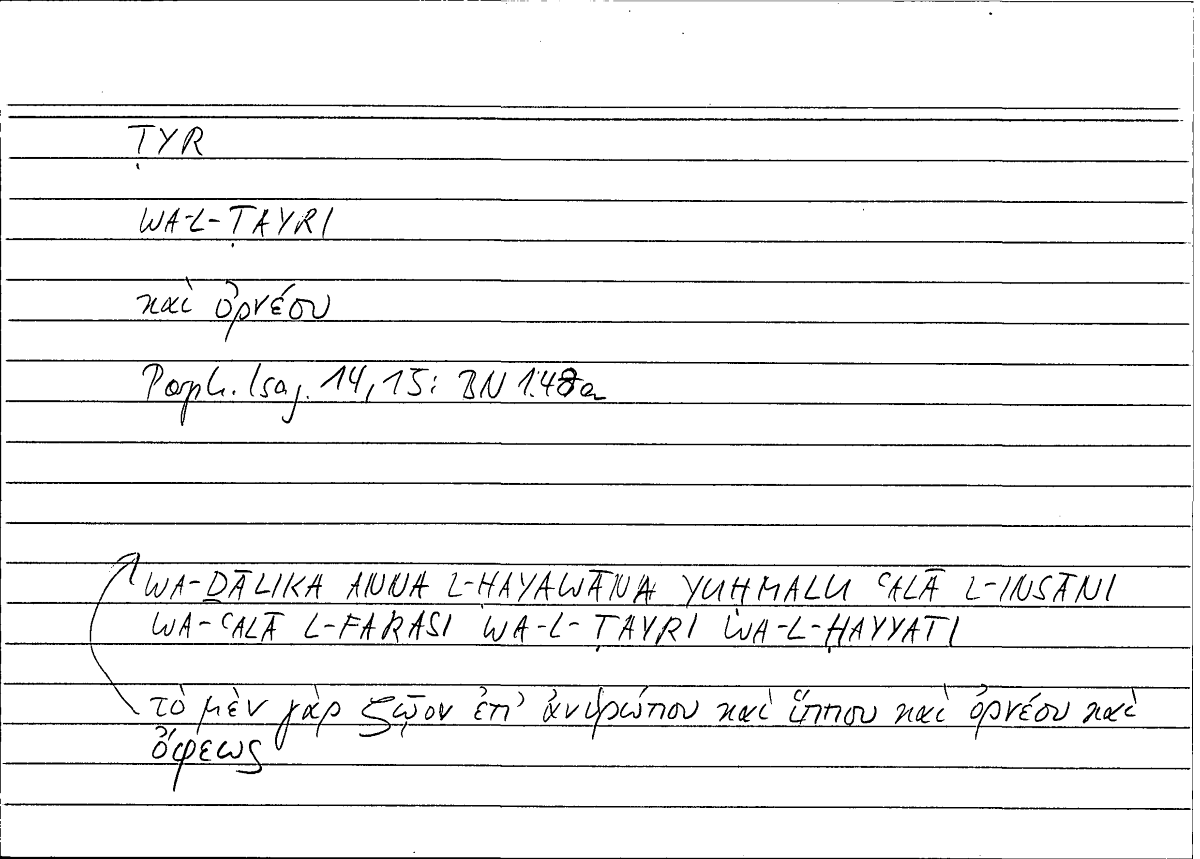 ṬYR
WA-L-ṬAYRI
καὶ ὀρνέου
Porph. Isag. 14,15: BN 148a
WA-ḎĀLIKA ANNA L-HAYAWĀNA YUḤMALU ʿALĀ L-INSĀNI
WA-ʿALĀ L-FARASI WA-L-ṬAYRI WA-L-ḤAYYATI
τὸ μὲν γὰρ ζῷον ἐπ' ἀνθρώπου καὶ ἵππου καὶ ὀρνέου καὶ
ὄφεως